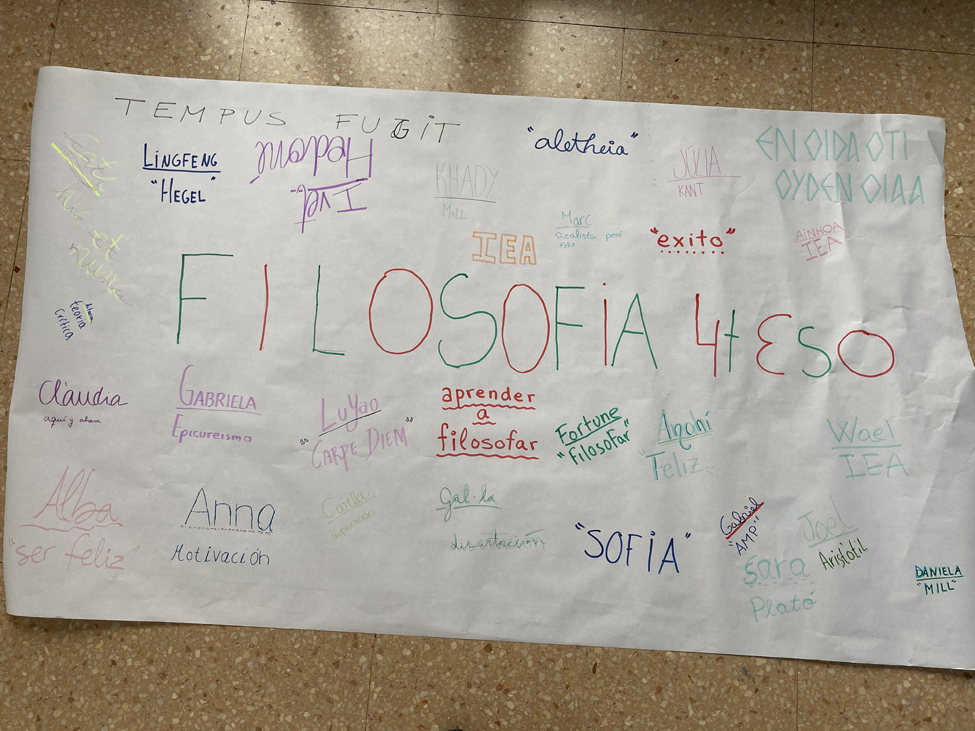 TEMPUS FUGIT
LINGFENG
"HEGEL"
Hedoné
Ivet
KHADY
MILL
"aletheia"
JÚLIA
KANT
EN OIDA OTI
OYDEN OIAA
hic et
nunc
IEA
Marc
Realista però
feliç
"exito"
AINHOA
IEA
teoria
crítica
FILOSOFIA 4t ESO
Claudia
aquí y ahora
GABRIELA
Epicureismo
LuYao
"CARPE DIEM"
aprender
a
filosofar
Fortune
"Filosofar"
Anahí
Feliz
Wael
IEA
Alba
"ser feliz"
Anna
Motivación
Carla
Gal·la
disertación
"SOFIA"
Gabriel
"AMP"
Joel
Aristòtil
Sara
Plató
DANIELA
"MILL"